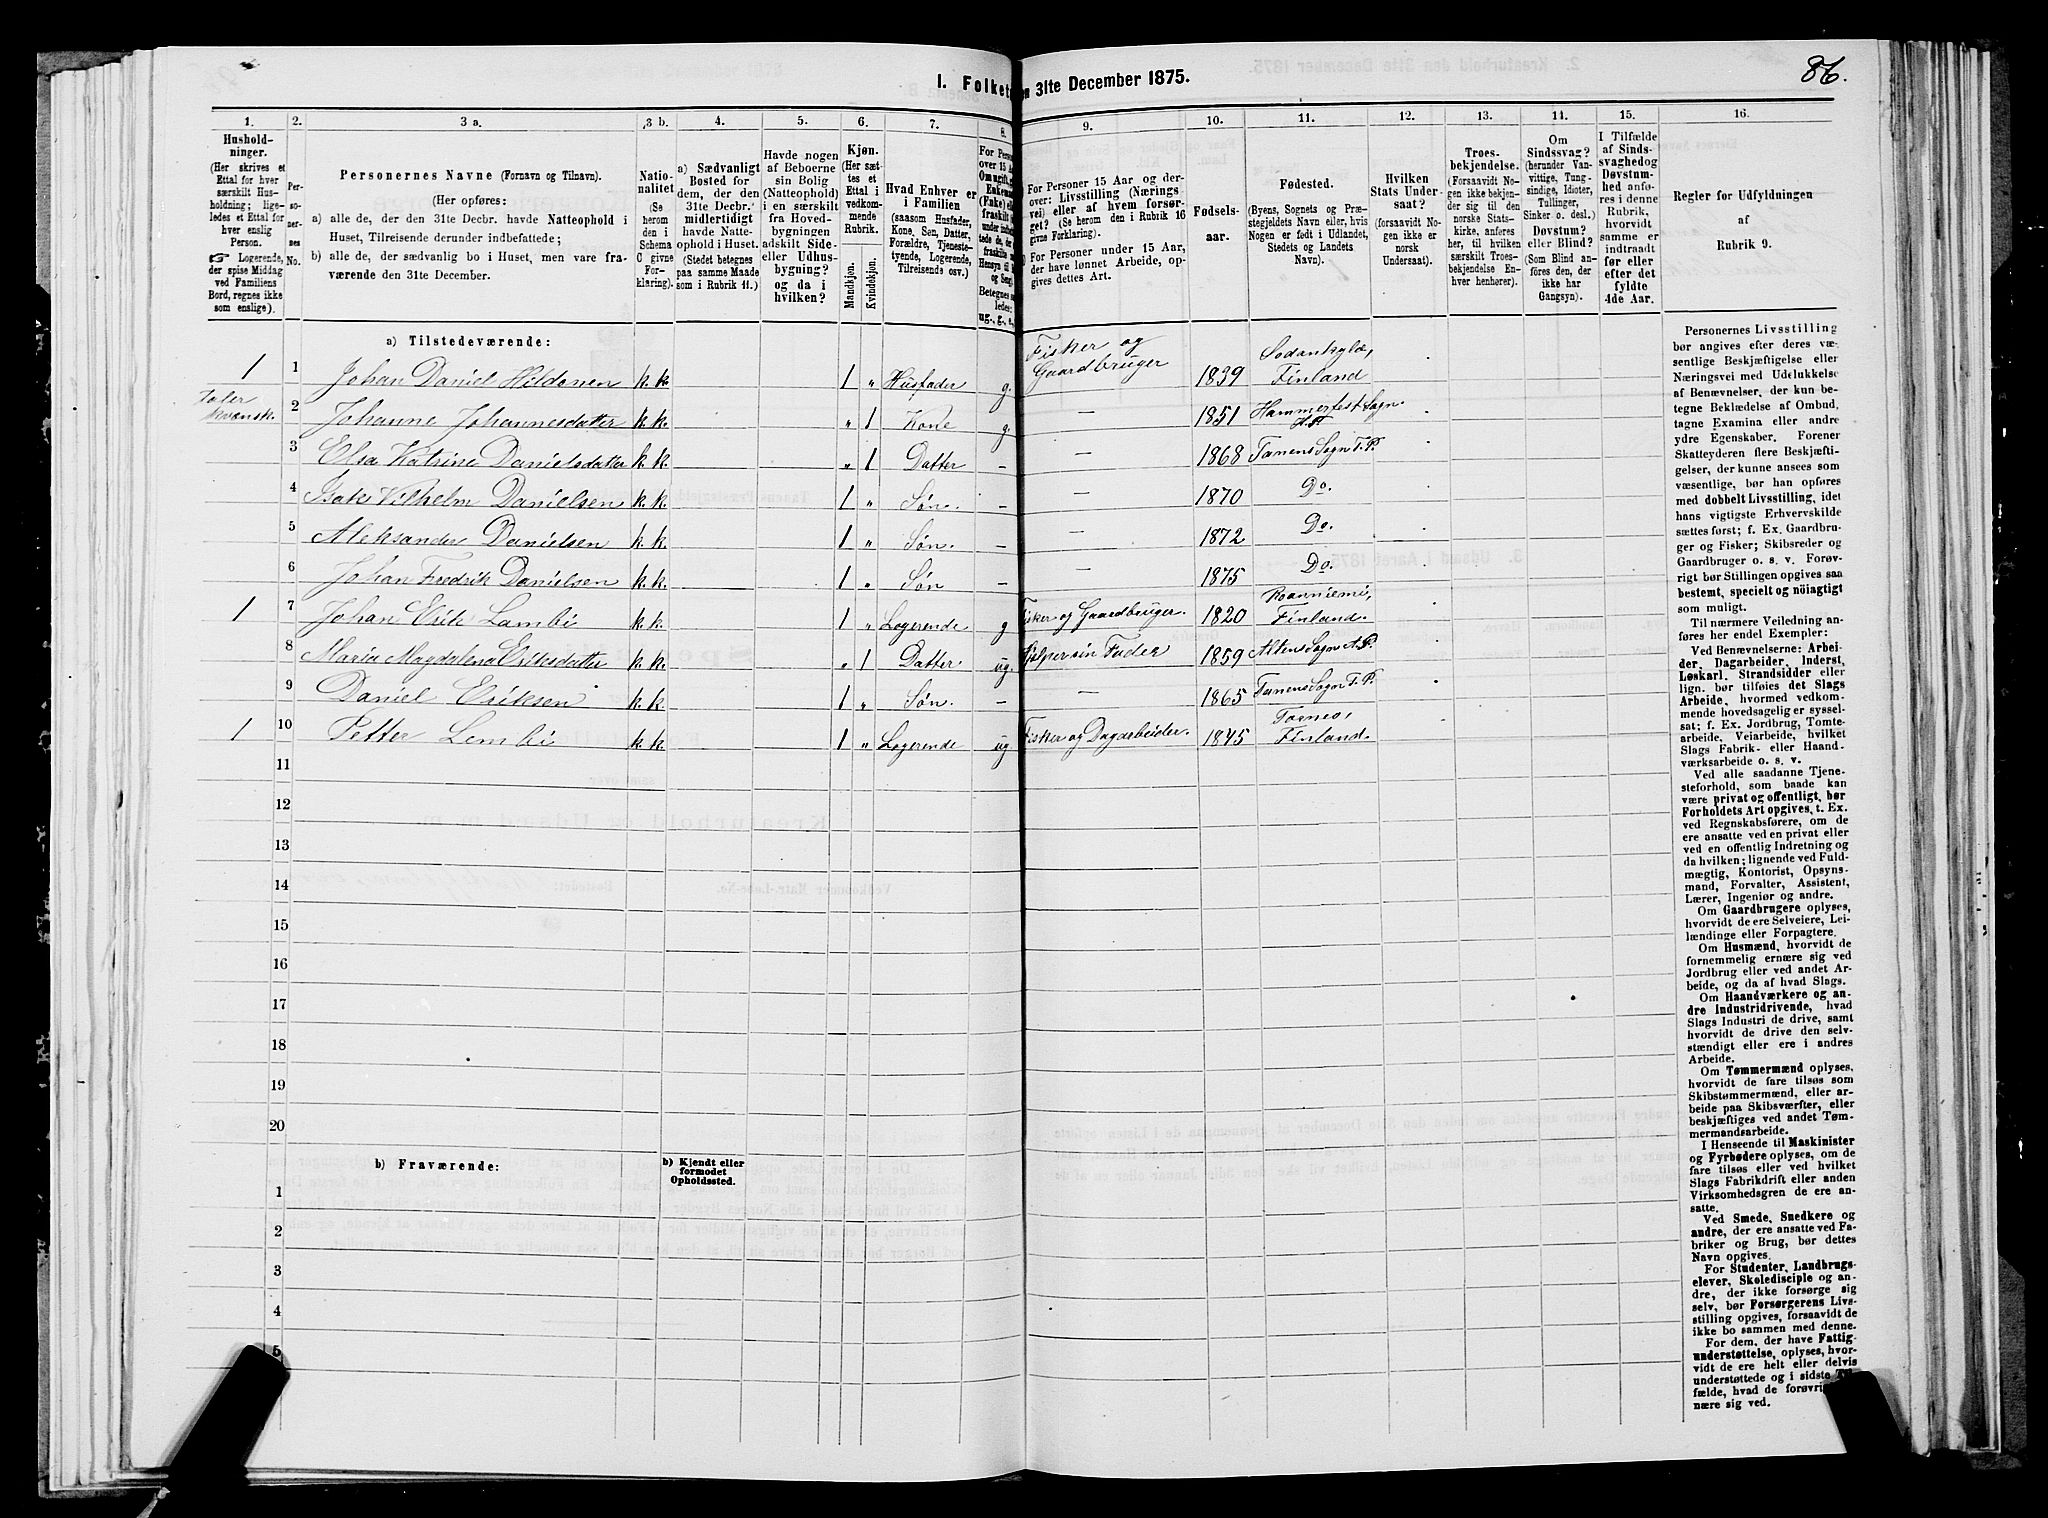 86.
I. Folket
n 31te December 1875.
1.
2.
3 a.
3 b.
4.
5.
6.
7.
8.
9.
10.
11.
12.
13.
14.
15.
16.
Hushold-
ninger.
(Her skrives et
Ettal for hver
særskilt Hus-
holdning; lige-
ledes et Ettal for
hver enslig
Person.
☞ Logerende,
der spise Middag
ved Familiens
Bord, regnes ikke
som enslige).
Per-
so-
ner-
nes
No.
Personernes Navne (Fornavn og Tilnavn).
(Her opføres:
a) alle de, der den 31te Decbr. havde Natteophold i
Huset, Tilreisende derunder indbefattede;
b) alle de, der sædvanlig bo i Huset, men vare fra-
værende den 31te December.
Natio-
nalitet
(Se
herom
den i
Schema
C givne
For-
klaring).
a) Sædvanligt
Bosted for
dem, der den
31te Decbr.
midlertidigt
havde Natte-
ophold i Huset.
(Stedet betegnes
paa samme Maade
som i Rubrik 11.)
Havde nogen
af Beboerne
sin Bolig
(Natteophold)
i en særskilt
fra Hoved-
bygningen
adskilt Side-
eller Udhus-
bygning?
og da i
hvilken?
Kjøn.
(Her sæt-
tes et
Ettal i
vedkom-
mende
Rubrik.
Mandkjøn.
Kvindekjøn.
Hvad Enhver er
i Familien
(saasom Husfader,
Kone, Søn, Datter,
Forældre, Tjeneste-
tyende, Logerende,
Tilreisende osv.)
For Personer 15 Aar og der-
over: Livsstilling (Nærings-
vei) eller af hvem forsør-
get? (Se herom den i Rubrik 16
givne Forklaring).
For Personer under 15 Aar,
der have lønnet Arbeide, op-
gives dettes Art.
Fødsels-
aar.
Fødested.
(Byens, Sognets og Præ-
stegjeldets Navn eller, hvis
Nogen er født i Udlandet,
Stedets og Landets
Navn).
Hvilken
Stats Under-
saat?
(forsaavidt No-
gen ikke er
norsk
Undersaat).
Troes-
bekjendelse.
(Forsaavidt No-
gen ikke bekjen-
der sig til den
norske Stats-
kirke, anføres
her, til hvilken
særskilt Troes-
bekjendelse En-
hver henhører).
Om
Sindssvag?
(herunder Van-
vittige, Tung-
sindige, Idioter,
Tullinger,
Sinker o. desl.)
Døvstum?
eller Blind?
(Som Blind an-
føres den, der
ikke har
Gangsyn).
I Tilfælde
af Sinds-
svaghed og
Døvstum-
hed anfø-
res i denne
Rubrik,
hvorvidt
samme er
indtraadt
før eller
efter det
fyldte
4de Aar.
Regler for Udfyldningen
af
Rubrik 9.
a) Tilstedeværende:
1 1 Johan Daniel Hildonen k.k. 1 „ Husfader g. Fisker og Gaardbruger 1839 Sodankylæ, Finland
Taler kvænsk.
2 Johanne Johannesdatter k.k. „ 1 Kone g. — 1851 Hammerfest Sogn. H.P.
3 Elsa Katrine Danielsdatter k.k. „ 1 Datter — — 1868 Tanens Sogn T.P.
4 Isak Vilhelm Danielsen k.k. 1 „ Søn. — — 1870 Do.
5 Aleksander Danielsen k.k. 1 „ Søn. — — 1872 Do.
6 Johan Fredrik Danielsen k.k. 1 „ Søn — — 1875 Do.
1 7 Johan Erik Lambi k.k. 1 „ Logerende g Fisker og Gaardbruger. 1820 Roanniemi, Finland.
8 Maria Magdalena Eriksdatter k.k. „ 1 Datter ug. Hjælper sin Fader 1859 Altens Sogn A.P.
9 Daniel Eriksen k.k. 1 „ Søn. — — 1865 Tanens Sogn T.P.
1 10 Petter Lembi k.k. 1 „ Logerende ug Fisker og Dagarbeider. 1845 Torneo, Finland.
11
12
13
14
15
16
17
18
19
20
b) Fraværende:
b) Kjendt eller
formodet
Opholdssted.
1
2
3
4
5
Personernes Livsstilling
bør angives efter deres væ-
sentlige Beskjæftigelse eller
Næringsvei med Udelukkelse
af Benævnelser, der kun be-
tegne Beklædelse af Ombud,
tagne Examina eller andre
ydre Egenskaber. Forener
Skatteyderen flere Beskjæfti-
gelser, der kunne ansees som
væsentlige, bør han opføres
med dobbelt Livsstilling, idet
hans vigtigste Erhvervskilde
sættes først; f. Ex. Gaardbru-
ger og Fisker; Skibsreder og
Gaardbruger o. s. v. Forøv-
rigt bør Stillingen opgives saa
bestemt, specielt og nöiagtigt
som muligt.
Til nærmere Veiledning an-
føres her endel Exempler:
Ved Benævnelserne: Arbei-
der, Dagarbeider, Inderst,
Løskarl, Strandsidder eller
lign. bør tilføies det Slags
Arbeide, hvormed vedkom-
mende hovedsagelig er syssel-
sat; f. Ex. Jordbrug, Tomte-
arbeide, Veiarbeide, hvilket
Slags Fabrik- eller Haand-
værksarbeide o. s. v.
Ved alle saadanne Tjene-
steforhold, som baade kan
være privat og offentligt, bør
Forholdets Art opgives, t. Ex.
ved Regnskabsførere, om de
ere ansatte ved en privat eller
ved en offentlig Indretning og
da hvilken; lignende ved Fuld-
mægtig, Kontorist, Opsyns-
mand, Forvalter, Assistent,
Lærer, Ingeniør og andre.
Om Gaardbrugere oplyses,
hvorvidt de ere Selveiere, Lei-
lændinge eller Forpagtere.
Om Husmænd, hvorvidt de
fornemmelig ernære sig ved
Jordbrug eller ved andet Ar-
beide, og da af hvad Slags.
Om Haandværkere og an-
dre Industridrivende, hvad
Slags Industri de drive, samt
hvorvidt de drive den selv-
stændigt eller ere i andres
Arbeide.
Om Tømmermænd oplyses,
hvorvidt de fare tilsøs som
Skibstømmermænd, eller ar-
beide paa Skibsværfter, eller
beskjæftiges ved andet Tøm-
mermandsarbeide.
I Henseende til Maskinister
og Fyrbødere oplyses, om de
fare tilsøs eller ved hvilket
Slags Fabrikdrift eller anden
Virksomhedsgren de ere an-
satte.
Ved Smede, Snedkere og
andre, der ere ansatte ved Fa-
briker og Brug, bør dettes
Navn opgives.
For Studenter, Landbrugs-
elever, Skoledisciple og an-
dre, der ikke forsørge sig
selv, bør Forsørgerens Livs-
stilling opgives, forsaavidt de
ikke bo sammen med denne.
For dem, der have Fattig-
understøttelse, oplyses, hvor-
vidt de ere helt eller delvis
understøttede og i sidste Til-
fælde, hvad de forøvrigt
nære sig ved.